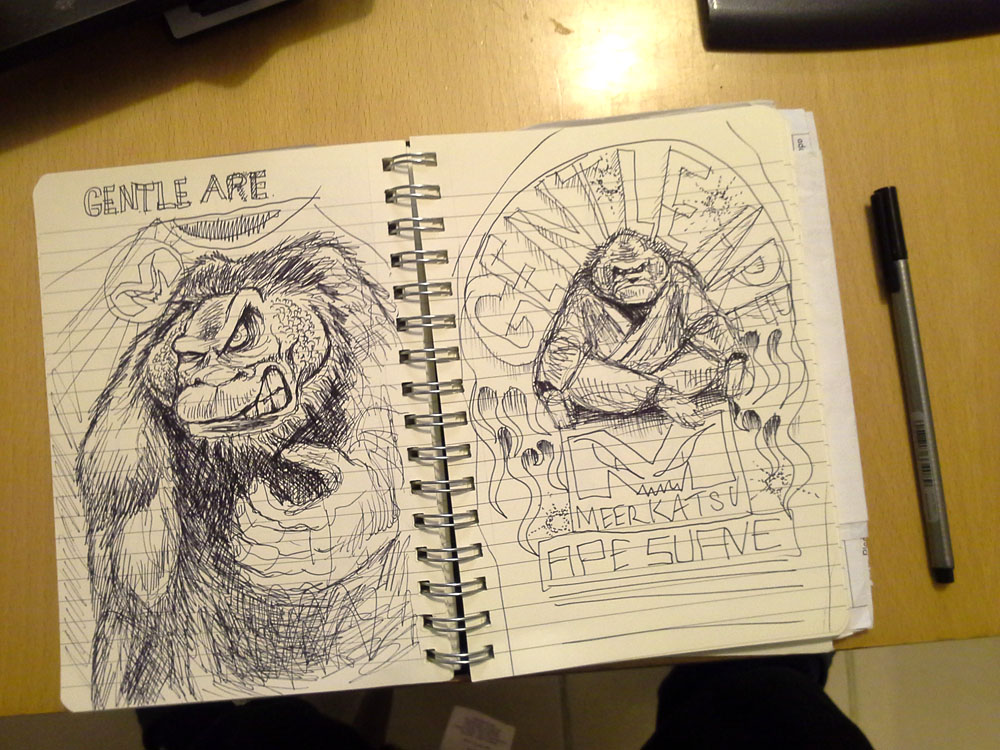 GENTLE ARE
GENTLE ART
MEERKATSU
APE SUAVE